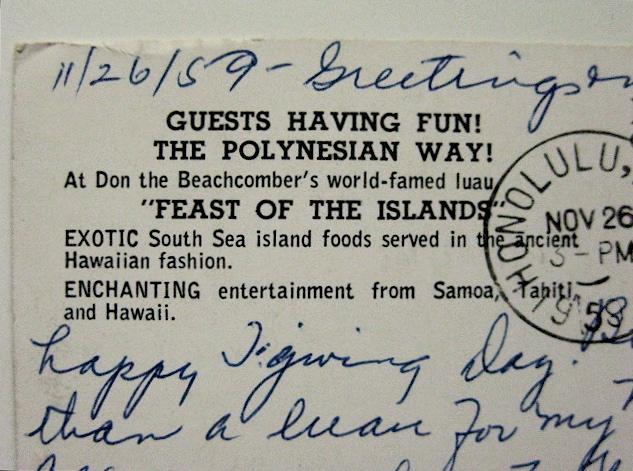 11/26/59 - Greetings on
GUESTS HAVING FUN!
THE POLYNESIAN WAY!
At Don the Beachcomber's world-famed luau
"FEAST OF THE ISLANDS"
EXOTIC South Sea island foods served in the ancient
Hawaiian fashion.
ENCHANTING entertainment from Samoa, Tahiti
and Hawaii.
HONOLULU,
NOV 26
3 - PM
1959
happy T'giving Day.
than a luau for my